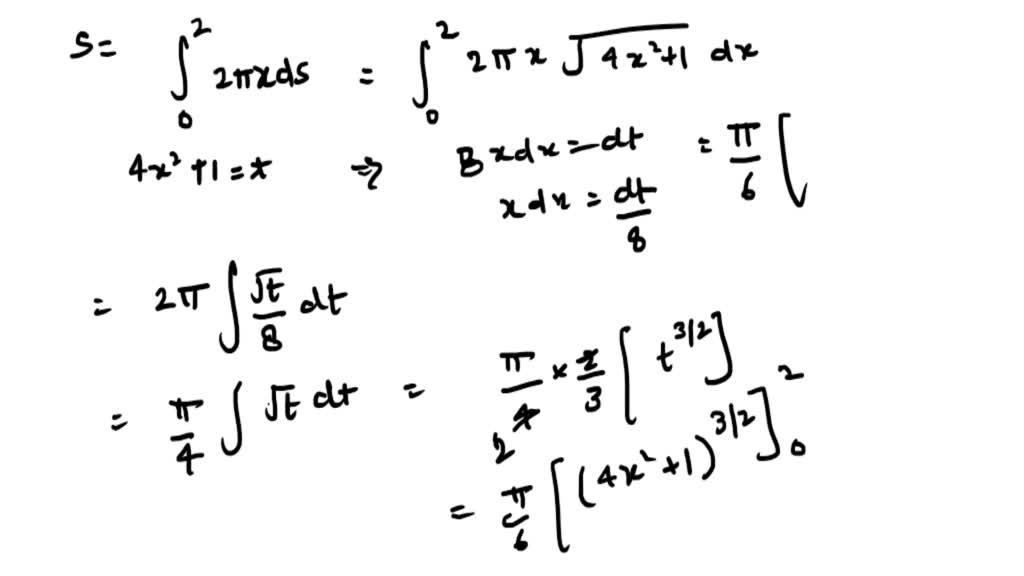 S = ∫₀² 2πx ds = ∫₀² 2πx √(4x²+1) dx
4x² + 1 = t ⇒ 8x dx = dt
x dx = dt/8
= π/6 [
= 2π ∫ √t/8 dt
= π/4 ∫ √t dt = π/4 × 2/3 [ t^3/2 ]
2
= π/6 [ (4x²+1)^3/2 ]₀²